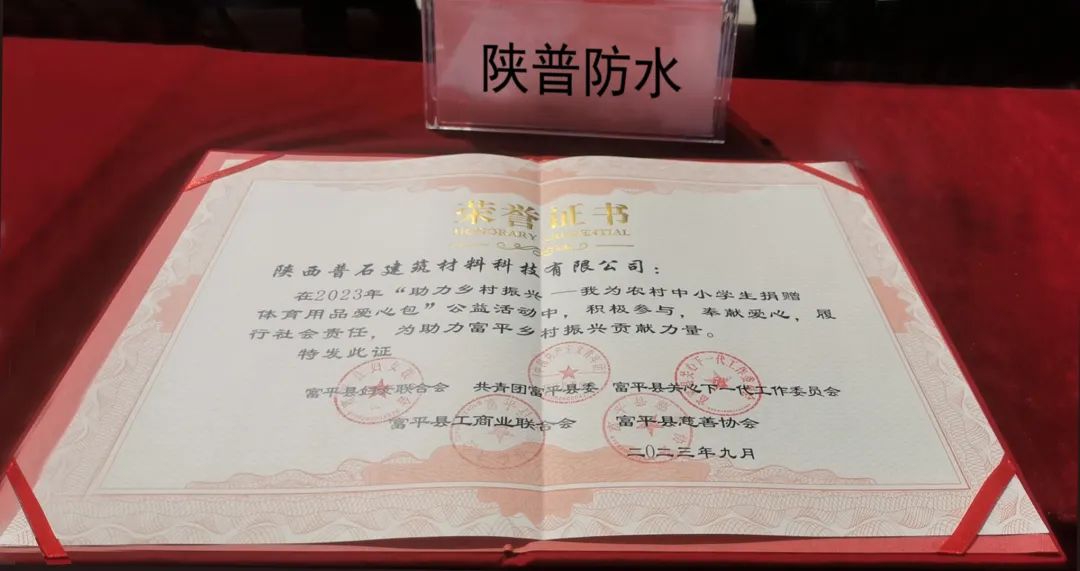 陕普防水
荣誉证书
HONORARY CREDENTIAL
陕西普石建筑材料科技有限公司：
在2023年“助力乡村振兴——我为农村中小学生捐赠
体育用品爱心包”公益活动中，积极参与，奉献爱心，履
行社会责任，为助力富平乡村振兴贡献力量。
特发此证
富平县妇女联合会 共青团富平县委 富平县关心下一代工作委员会
富平县工商业联合会 富平县慈善协会
二〇二三年九月